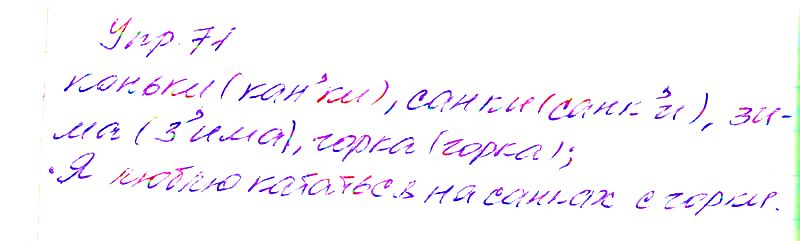 Упр. 71
коньки (кан'ки), санки (санк'и), зи-
ма (з'има), горка (горка);
Я люблю кататься на санках с горки.